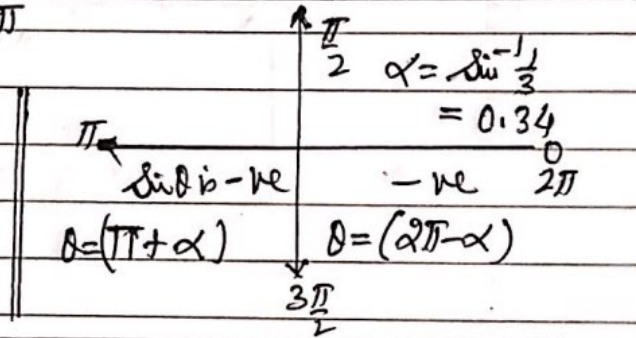 π
π/2 α = sin⁻¹ 1/3
= 0.34
π 0
sinθ is -ve -ve 2π
θ=(π+α) θ=(2π-α)
3π/2